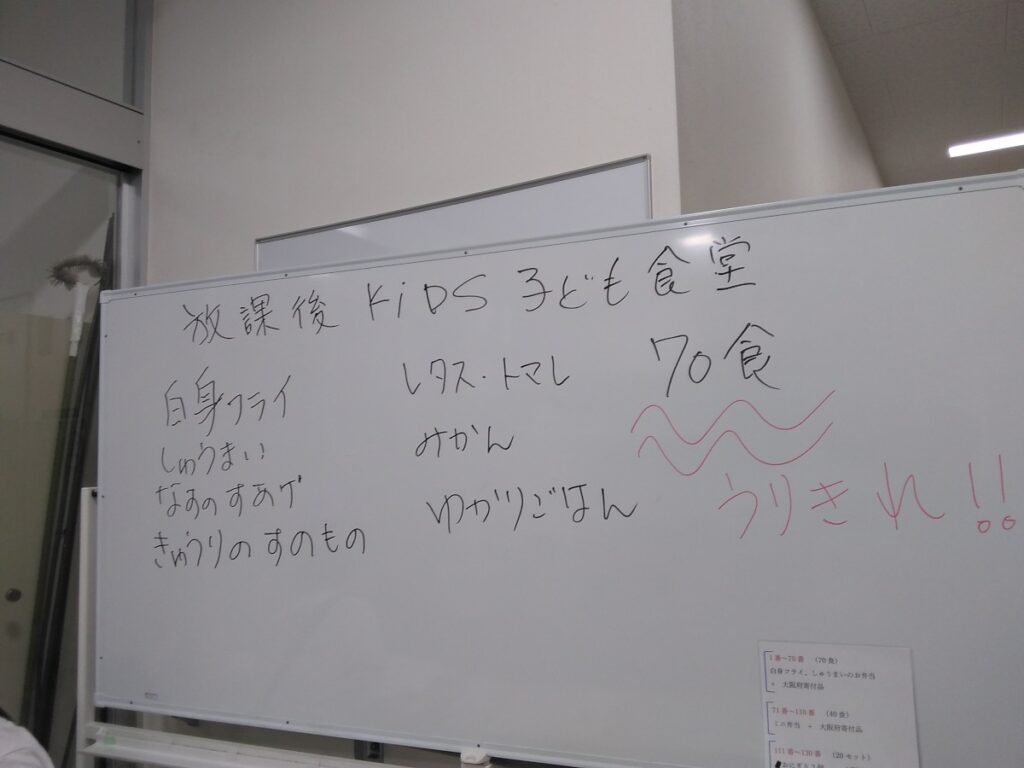 放課後 KiDS 子ども食堂
白身フライ
しゅうまい
なすのすあげ
きゅうりのすのもの
レタス・トマト
みかん
ゆかりごはん
70食
うりきれ!!
1番~70番 (70食)
白身フライ、しゅうまいのお弁当
+ 大阪府寄付品
71番~110番 (40食)
ミニ弁当 + 大阪府寄付品
111番~130番 (20セット)